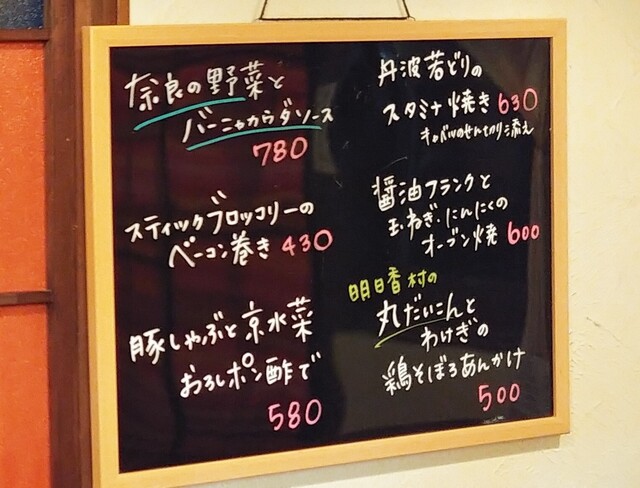 奈良の野菜と
バーニャカウダソース
780
スティックブロッコリーの
ベーコン巻き 430
豚しゃぶと京水菜
おろしポン酢で
580
丹波若どりの
スタミナ焼き 630
キャベツのせん切り添え
醤油フランクと
玉ねぎ・にんにくの
オーブン焼 600
明日香村の
丸だいこんと
わけぎの
鶏そぼろあんかけ
500